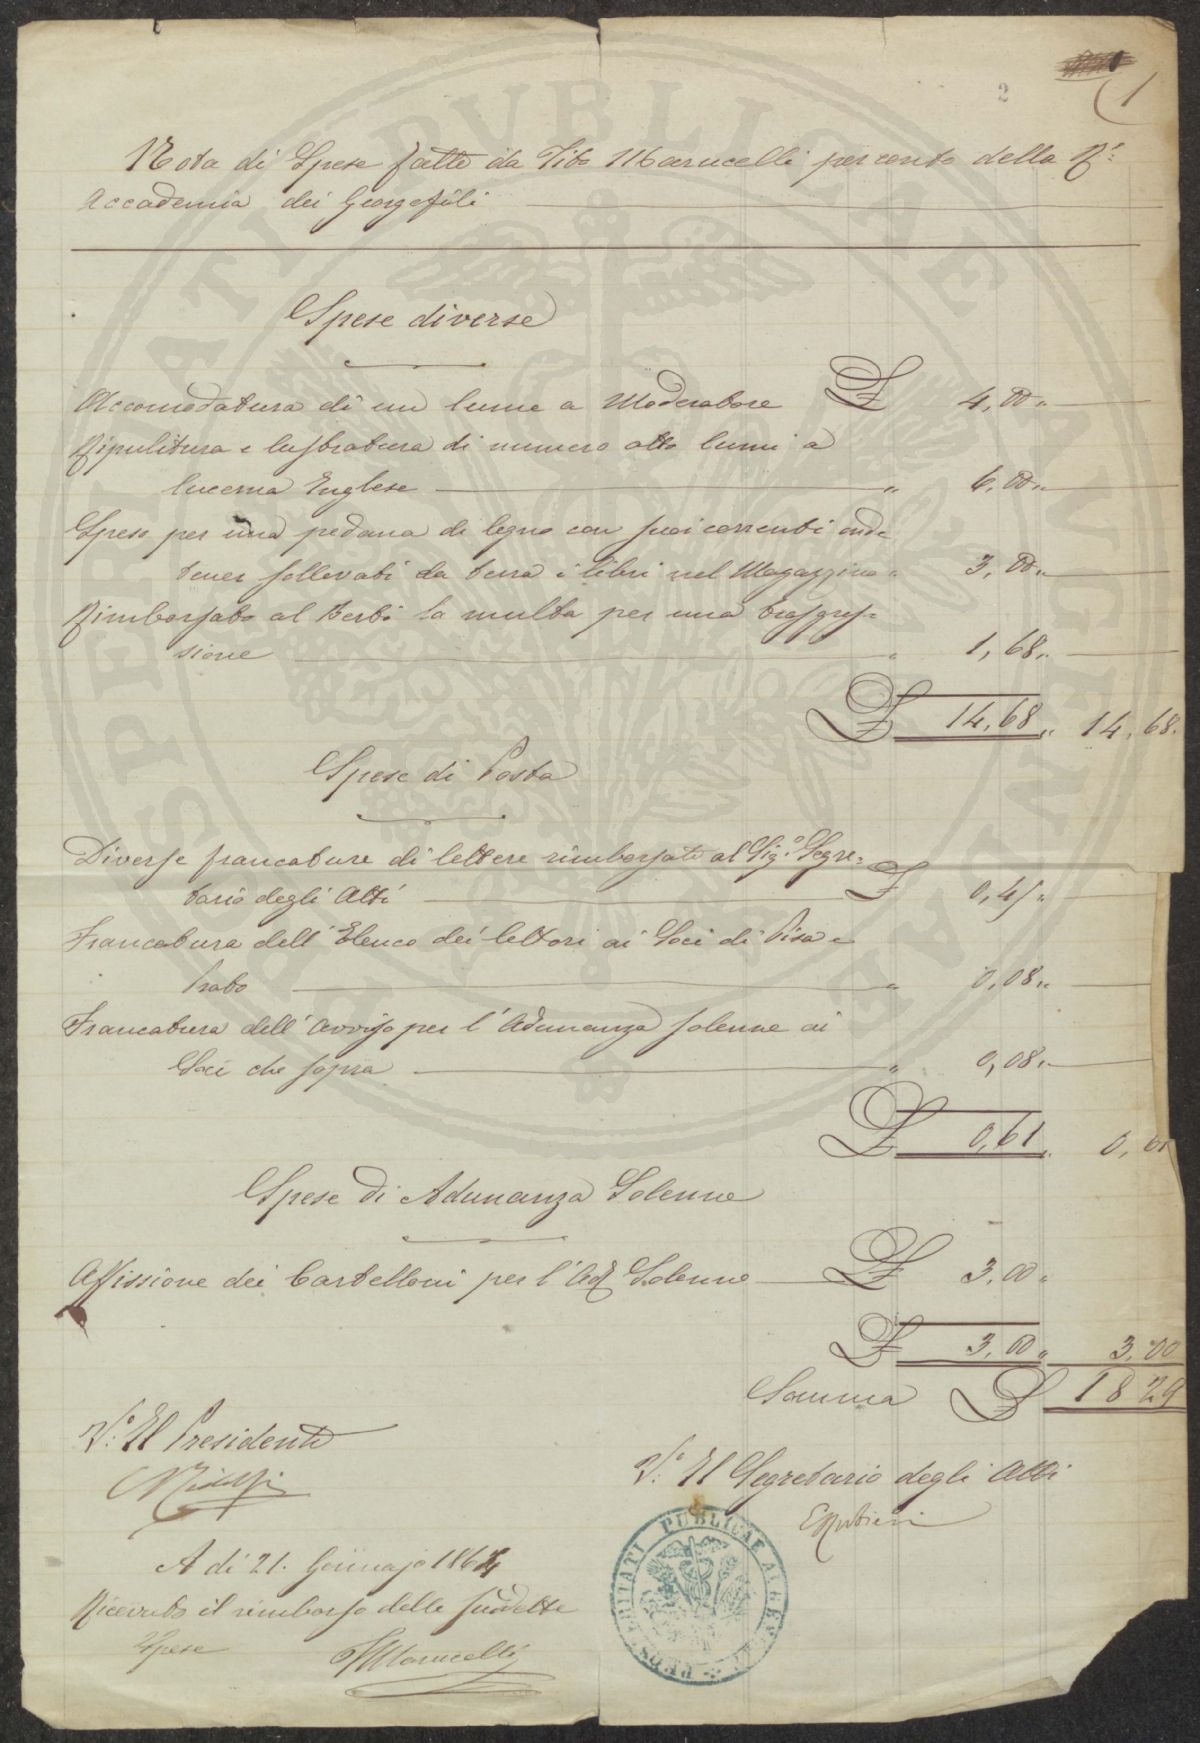 2
1
Nota di Spese fatte da Tito Marucelli per conto della R.ª
Accademia dei Georgofili
Spese diverse
Accomodatura di un lume a Moderatore £ 4,00 "
Ripulitura e lustratura di numero otto lumi a
lucerna Inglese " 6,00 "
Spesa per una pedana di legno con suoi correnti ond=
tener sollevati da terra i libri nel Magazzino " 3,00 "
Rimborsato al Berti la multa per una trasgres=
sione " 1,68 "
£ 14,68 " 14,68.
Spese di Posta
Diverse francature di lettere rimborsate al Sig.º Segre=
tario degli Atti £ 0,45 "
Francatura dell'Elenco dei lettori ai Soci di Pisa e
Prato " 0,08 "
Francatura dell'Avviso per l'Adunanza solenne ai
Soci che sopra " 0,08 "
£ 0,61 " 0,61
Spese di Adunanza Solenne
Affissione dei Cartelloni per l'Ad.ª Solenne £ 3,00 "
£ 3,00 " 3,00
Somma £ 18 29
V.º Il Presidente
Ridolfi
V.º Il Segretario degli Atti
A dì 21. Gennajo 1864
Ricevuto il rimborso delle suddette
Spese
TMarucelli
PROSPERITATI PUBLICAE AUGENDAE
PROSPERITATI PVBLICAE AVGENDAE